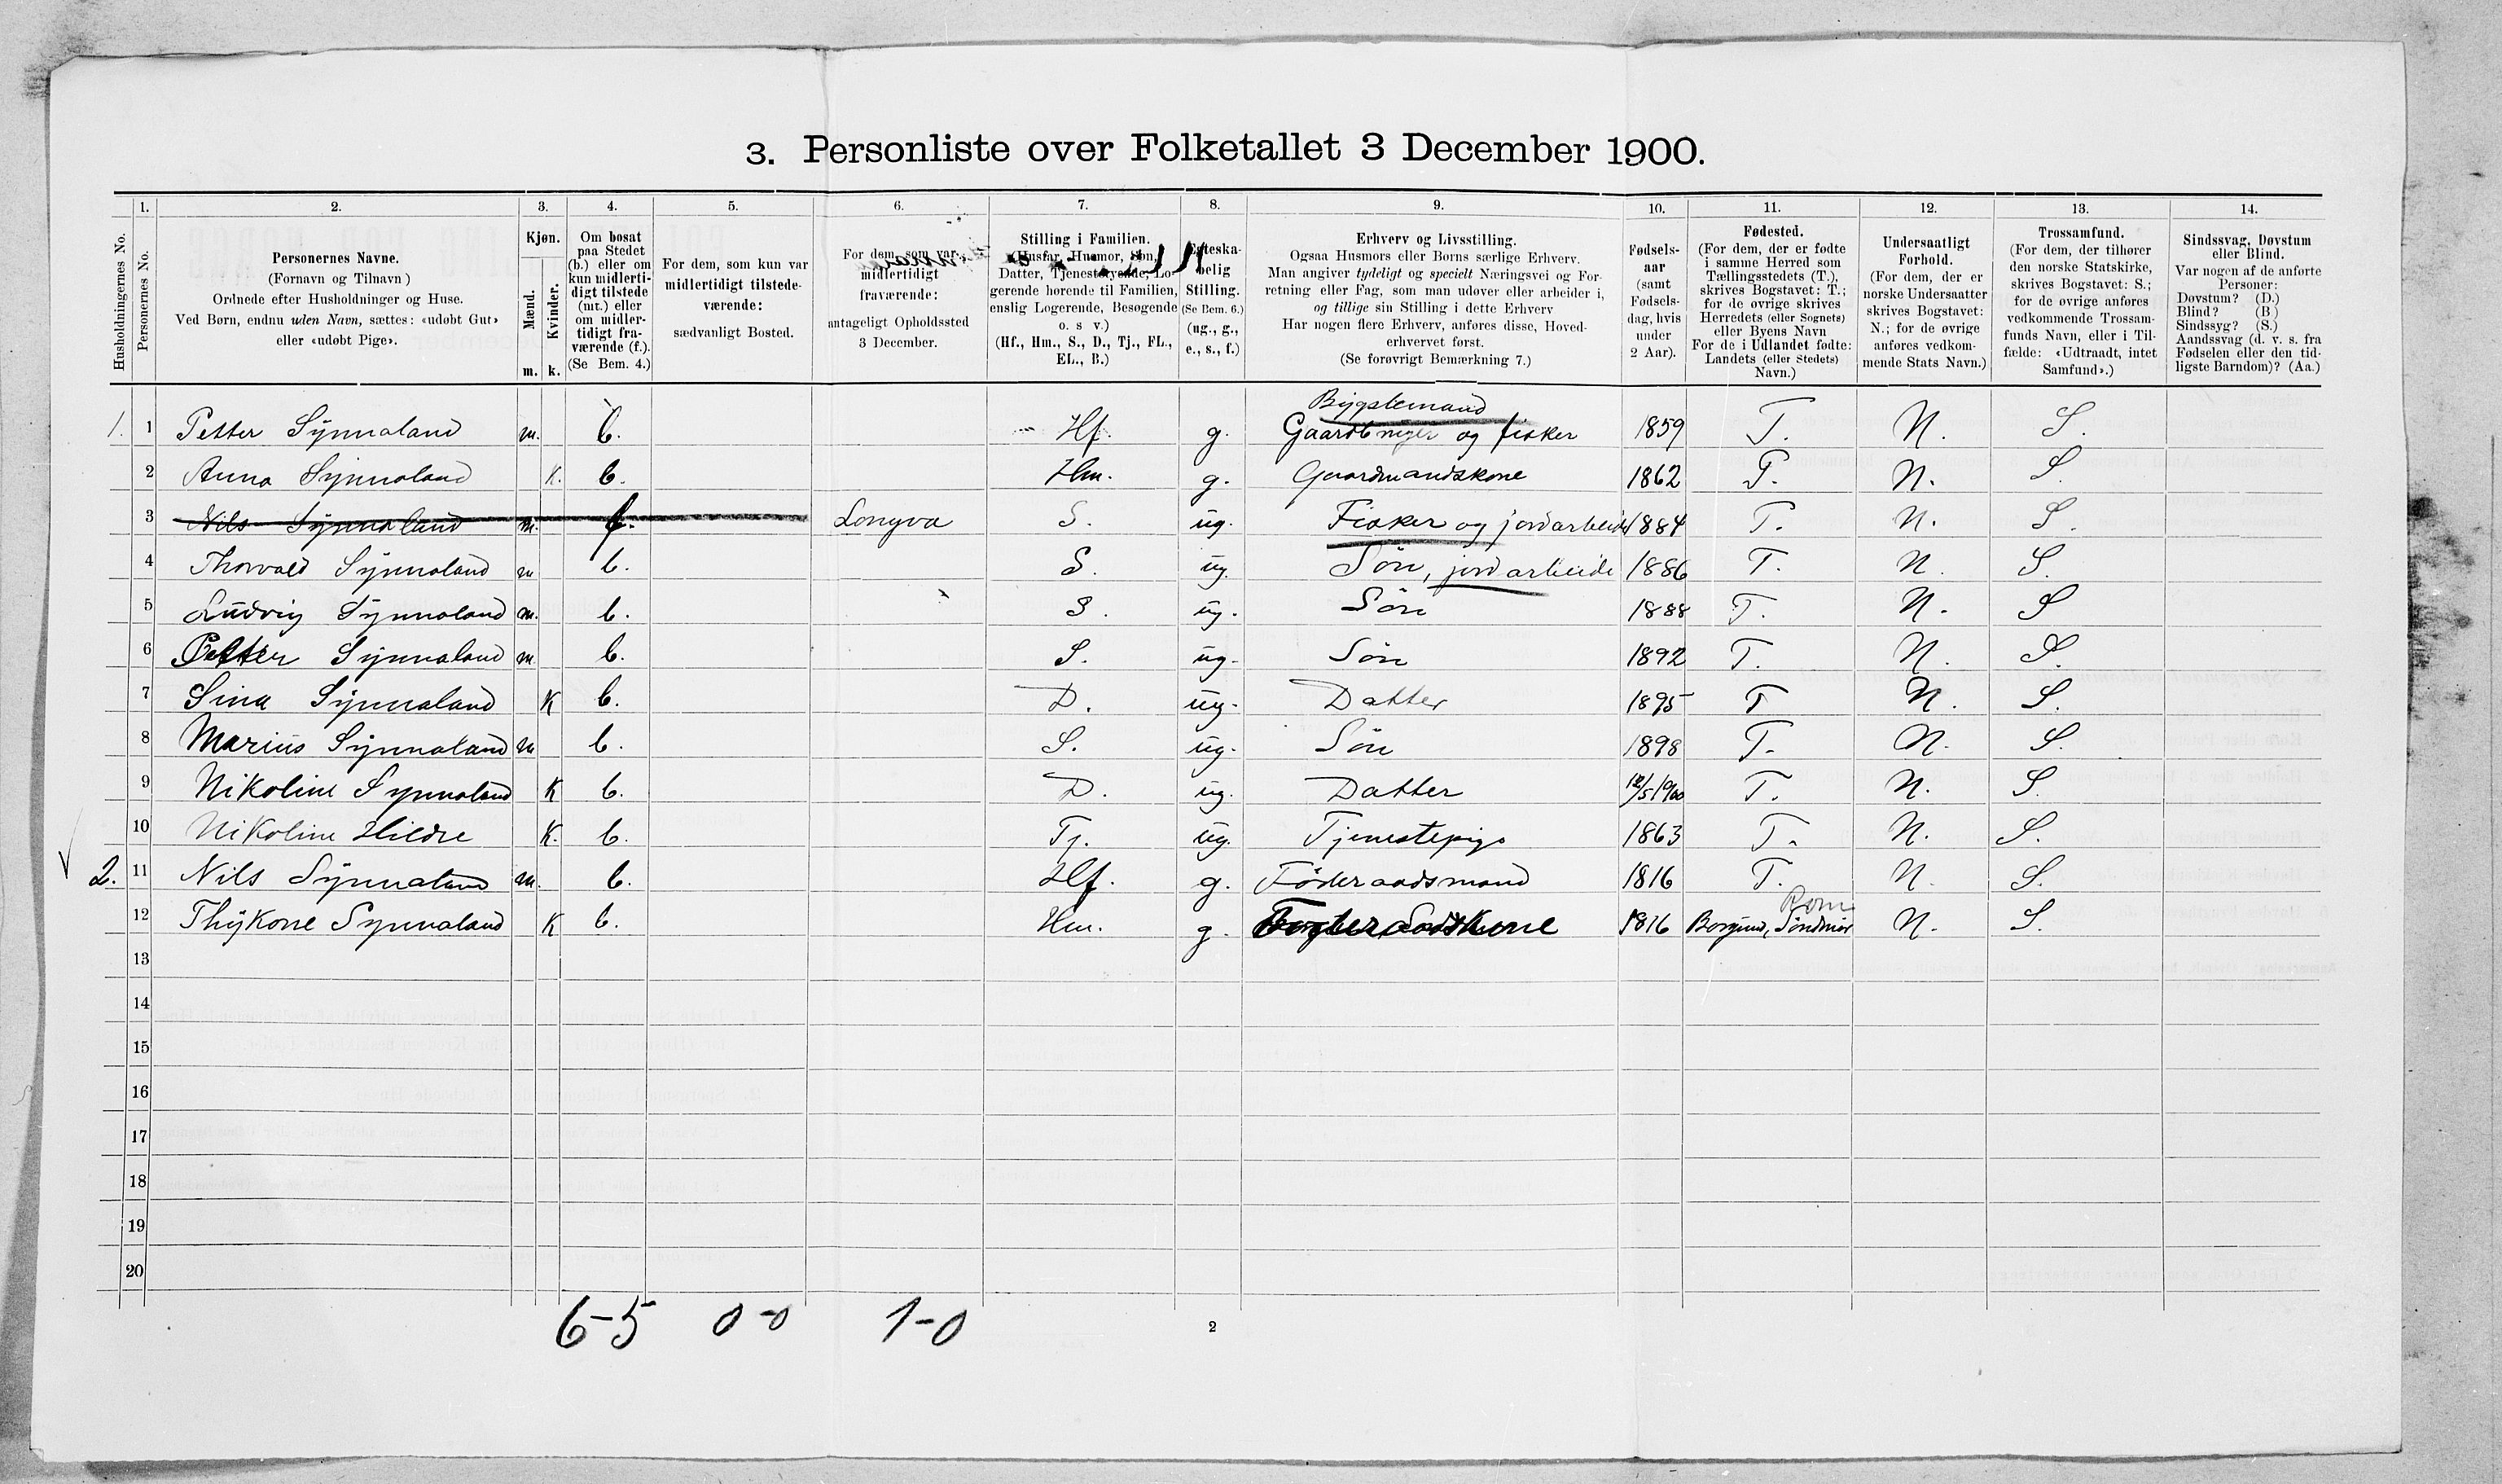 3. Personliste over Folketallet 3 December 1900.
Husholdningernes No.
1. Personernes No.
2. Personernes Navne.
(Fornavn og Tilnavn)
Ordnede efter Husholdninger og Huse.
Ved Børn, endnu uden Navn, sættes: «udøbt Gut»
eller «udøbt Pige».
3. Kjøn.
Mænd. m.
Kvinder. k.
4. Om bosat
paa Stedet
(b.) eller om
kun midlerti-
digt tilstede
(mt.) eller
om midler-
tidigt fra-
værende (f.).
(Se Bem. 4.)
5. For dem, som kun var
midlertidigt tilstede-
værende:
sædvanligt Bosted.
6. For dem, som var
midlertidigt
fraværende:
antageligt Opholdssted
3 December.
7. Stilling i Familien.
(Husfar, Husmor, Søn,
Datter, Tjenestetyende, Lo-
gerende hørende til Familien,
enslig Logerende, Besøgende
o. s v.)
(Hf., Hm., S., D., Tj., FL.,
EL., B.)
8. Egteska-
belig
Stilling.
(Se Bem. 6.)
(ug., g.,
e., s., f.)
9. Erhverv og Livsstilling.
Ogsaa Husmors eller Børns særlige Erhverv.
Man angiver tydeligt og specielt Næringsvei og For-
retning eller Fag, som man udøver eller arbeider i,
og tillige sin Stilling i dette Erhverv
Har nogen flere Erhverv, anføres disse, Hoved-
erhvervet først.
(Se forøvrigt Bemærkning 7.)
10. Fødsels-
aar
(samt
Fødsels-
dag, hvis
under
2 Aar).
11. Fødested.
(For dem, der er fødte
i samme Herred som
Tællingsstedets (T.),
skrives Bogstavet: T.;
for de øvrige skrives
Herredets (eller Sognets)
eller Byens Navn
For de i Udlandet fødte:
Landets (eller Stedets)
Navn.)
12. Undersaatligt
Forhold.
(For dem, der er
norske Undersaatter
skrives Bogstavet:
N.; for de øvrige
anføres vedkom-
mende Stats Navn.)
13. Trossamfund.
(For dem, der tilhører
den norske Statskirke,
skrives Bogstavet: S.;
for de øvrige anføres
vedkommende Trossam-
funds Navn, eller i Til-
fælde: «Udtraadt, intet
Samfund».)
14. Sindssvag, Døvstum
eller Blind.
Var nogen af de anførte
Personer:
Døvstum? (D.)
Blind? (B)
Sindssyg? (S.)
Aandssvag (d. v. s. fra
Fødselen eller den tid-
ligste Barndom)? (Aa.)
Bygslemand
1. 1 Petter Synnaland m. b. Hf. g. Gaardbruger og fisker 1859 T. N. S.
2 Anna Synnaland K. b. Hm. g. Gaardmandskone 1862 T. N. S.
3 Nils Synnaland m. f. Longva S. ug. Fisker og jordarbeide 1884 T. N. S.
4 Thorvald Synnaland m b. S. ug. Søn, jordarbeide 1886 T. N. S.
5 Ludvig Synnaland m. b. S. ug. Søn 1888 T. N. S
6 Petter Synnaland m. b. S. ug. Søn 1892 T. N. S.
7 Sina Synnaland K b. D. ug. Datter 1895 T N. S.
8 Marius Synnaland m b. S. ug. Søn 1898 T. N. S.
9 Nikoline Synnaland K b. D. ug. Datter T. N. S.
10 Nikoline Hildre K. b. Tj. ug. Tjenestepige 1863 T. N. S.
2. 11 Nils Synnaland m. b. Hf. g. Föderaadsmand 1816 T. N. S.
Rom
12 Thykone Synnaland K b. Hm. g. 1816 Borgund, Søndmør N. S.
13
14
15
16
17
18
19
20
6-5 0-0 1-0
2